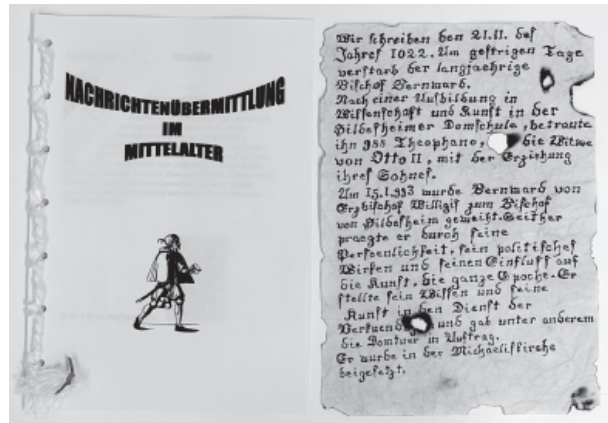 NACHRICHTENÜBERMITTLUNG
IM
MITTELALTER
Wir schreiben den 21.11. des
Jahres 1022. Am gestrigen Tage
verstarb der langjaehrige
Bischof Bernward.
Nach einer Ausbildung in
Wissenschaft und Kunst in der
Hildesheimer Domschule, betraute
ihn 988 Theophano, die Witwe
von Otto II, mit der Erziehung
ihres Sohnes.
Am 15.1.993 wurde Bernward von
Erzbischof Willigis zum Bischof
von Hildesheim geweiht. Seither
praegte er durch seine
Persoenlichkeit, sein politisches
Wirken und seinen Einfluss auf
die Kunst, die ganze Epoche. Er
stellte sein Wissen und seine
Kunst in den Dienst der
und gab unter anderem
die Domtuer in Auftrag.
Er wurde in der Michaeliskirche
beigesetzt.